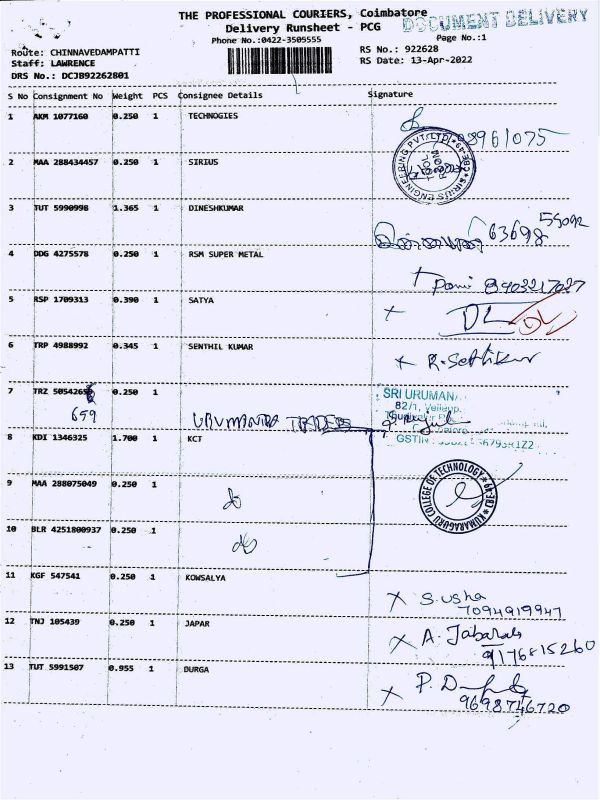 THE PROFESSIONAL COURIERS, Coimbatore
DOCUMENT DELIVERY
Delivery Runsheet - PCG
Page No.:1
Phone No.:0422-3505555
Route: CHINNAVEDAMPATTI
RS No.: 922628
Staff: LAWRENCE
RS Date: 13-Apr-2022
DRS No.: DCJB92262801
S No Consignment No Weight PCS Consignee Details Signature
1 AKM 1077160 0.250 1 TECHNOGIES
2 MAA 288434457 0.250 1 SIRIUS
SIRIUS ENGINEERING PVT. LTD.
3 TUT 5990998 1.365 1 DINESHKUMAR
63698 55092
4 DDG 4275578 0.250 1 RSM SUPER METAL
5 RSP 1709313 0.390 1 SATYA
DL
6 TRP 4988992 0.345 1 SENTHIL KUMAR
7 TRZ 505426 0.250 1
SRI URUMAN
82/1,
659
URUMANDA TRADERS
GSTIN
8 KDI 1346325 1.700 1 KCT
KUMARAGURU COLLEGE OF TECHNOLOGY
9 MAA 288075049 0.250 1
do
10 BLR 4251800937 0.250 1
do
11 KGF 547541 0.250 1 KOWSALYA
S. Usha
7094919947
12 TNJ 105439 0.250 1 JAPAR
A. Jabarali
9176815260
13 TUT 5991507 0.955 1 DURGA
9698746720